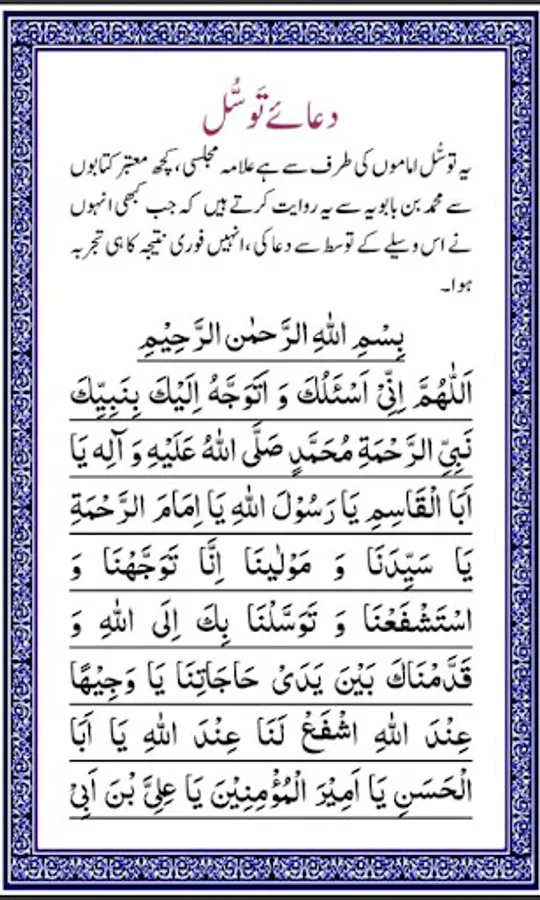 دعائے توسُّل
یہ توسُّل اماموں کی طرف سے ہے علامہ مجلسی، کچھ معتبر کتابوں
سے محمد بن بابویہ سے یہ روایت کرتے ہیں کہ جب کبھی انہوں
نے اس وسیلے کے توسط سے دعا کی، انہیں فوری نتیجہ کا ہی تجربہ
ہوا۔
بِسْمِ اللهِ الرَّحْمٰنِ الرَّحِيْمِ
اَللّٰهُمَّ اِنِّیْ اَسْئَلُكَ وَ اَتَوَجَّهُ اِلَيْكَ بِنَبِيِّكَ
نَبِیِّ الرَّحْمَةِ مُحَمَّدٍ صَلَّى اللهُ عَلَيْهِ وَ آلِهٖ يَا
اَبَا الْقَاسِمِ يَا رَسُوْلَ اللهِ يَا اِمَامَ الرَّحْمَةِ
يَا سَيِّدَنَا وَ مَوْلٰينَا اِنَّا تَوَجَّهْنَا وَ
اسْتَشْفَعْنَا وَ تَوَسَّلْنَا بِكَ اِلَى اللهِ وَ
قَدَّمْنَاكَ بَيْنَ يَدَیْ حَاجَاتِنَا يَا وَجِيْهًا
عِنْدَ اللهِ اشْفَعْ لَنَا عِنْدَ اللهِ يَا اَبَا
الْحَسَنِ يَا اَمِيْرَ الْمُؤْمِنِيْنَ يَا عَلِیَّ بْنَ اَبِیْ